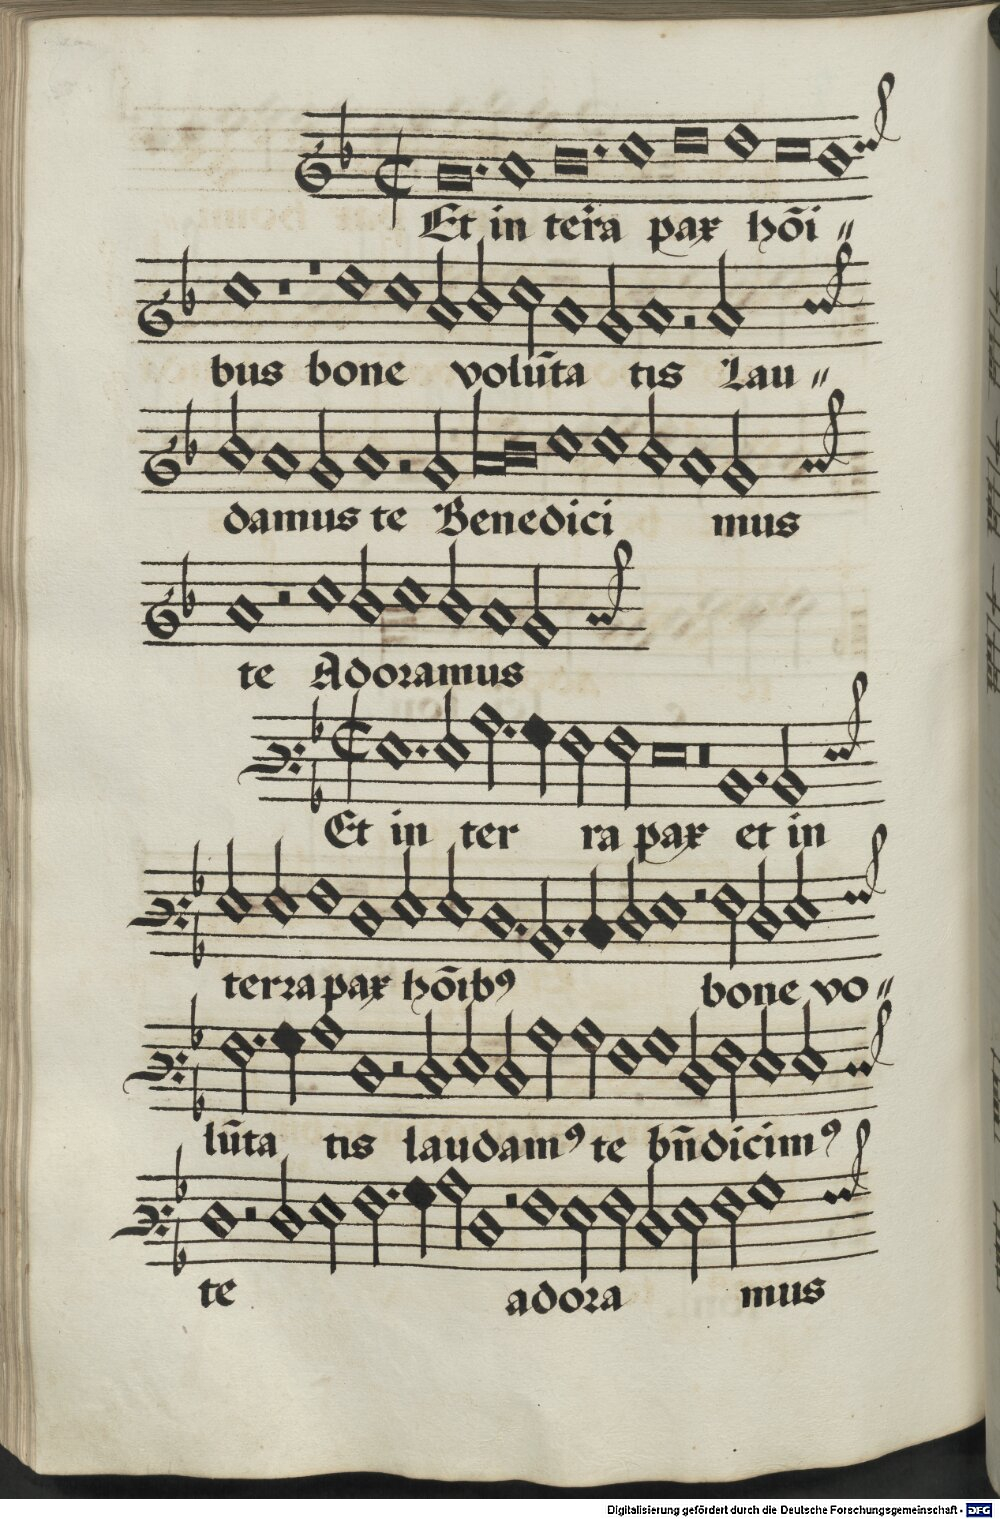 Et in terra pax hōi〃
bus bone volūta tis Lau〃
damus te Benedici mus
te Adoramus
Et in ter ra pax et in
terra pax hōibꝰ bone vo〃
lūta tis laudamꝰ te bn̄dicimꝰ
te adora mus
Digitalisierung gefördert durch die Deutsche Forschungsgemeinschaft - DFG